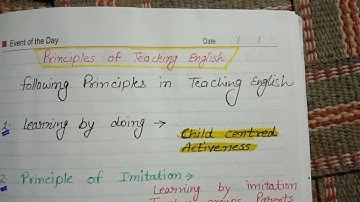 Event of the Day
Date / /
Principles of Teaching English
following Principles in Teaching English
1. Learning by doing →
Child centred
Activeness
2 Principle of Imitation →
Learning by imitation
Parents